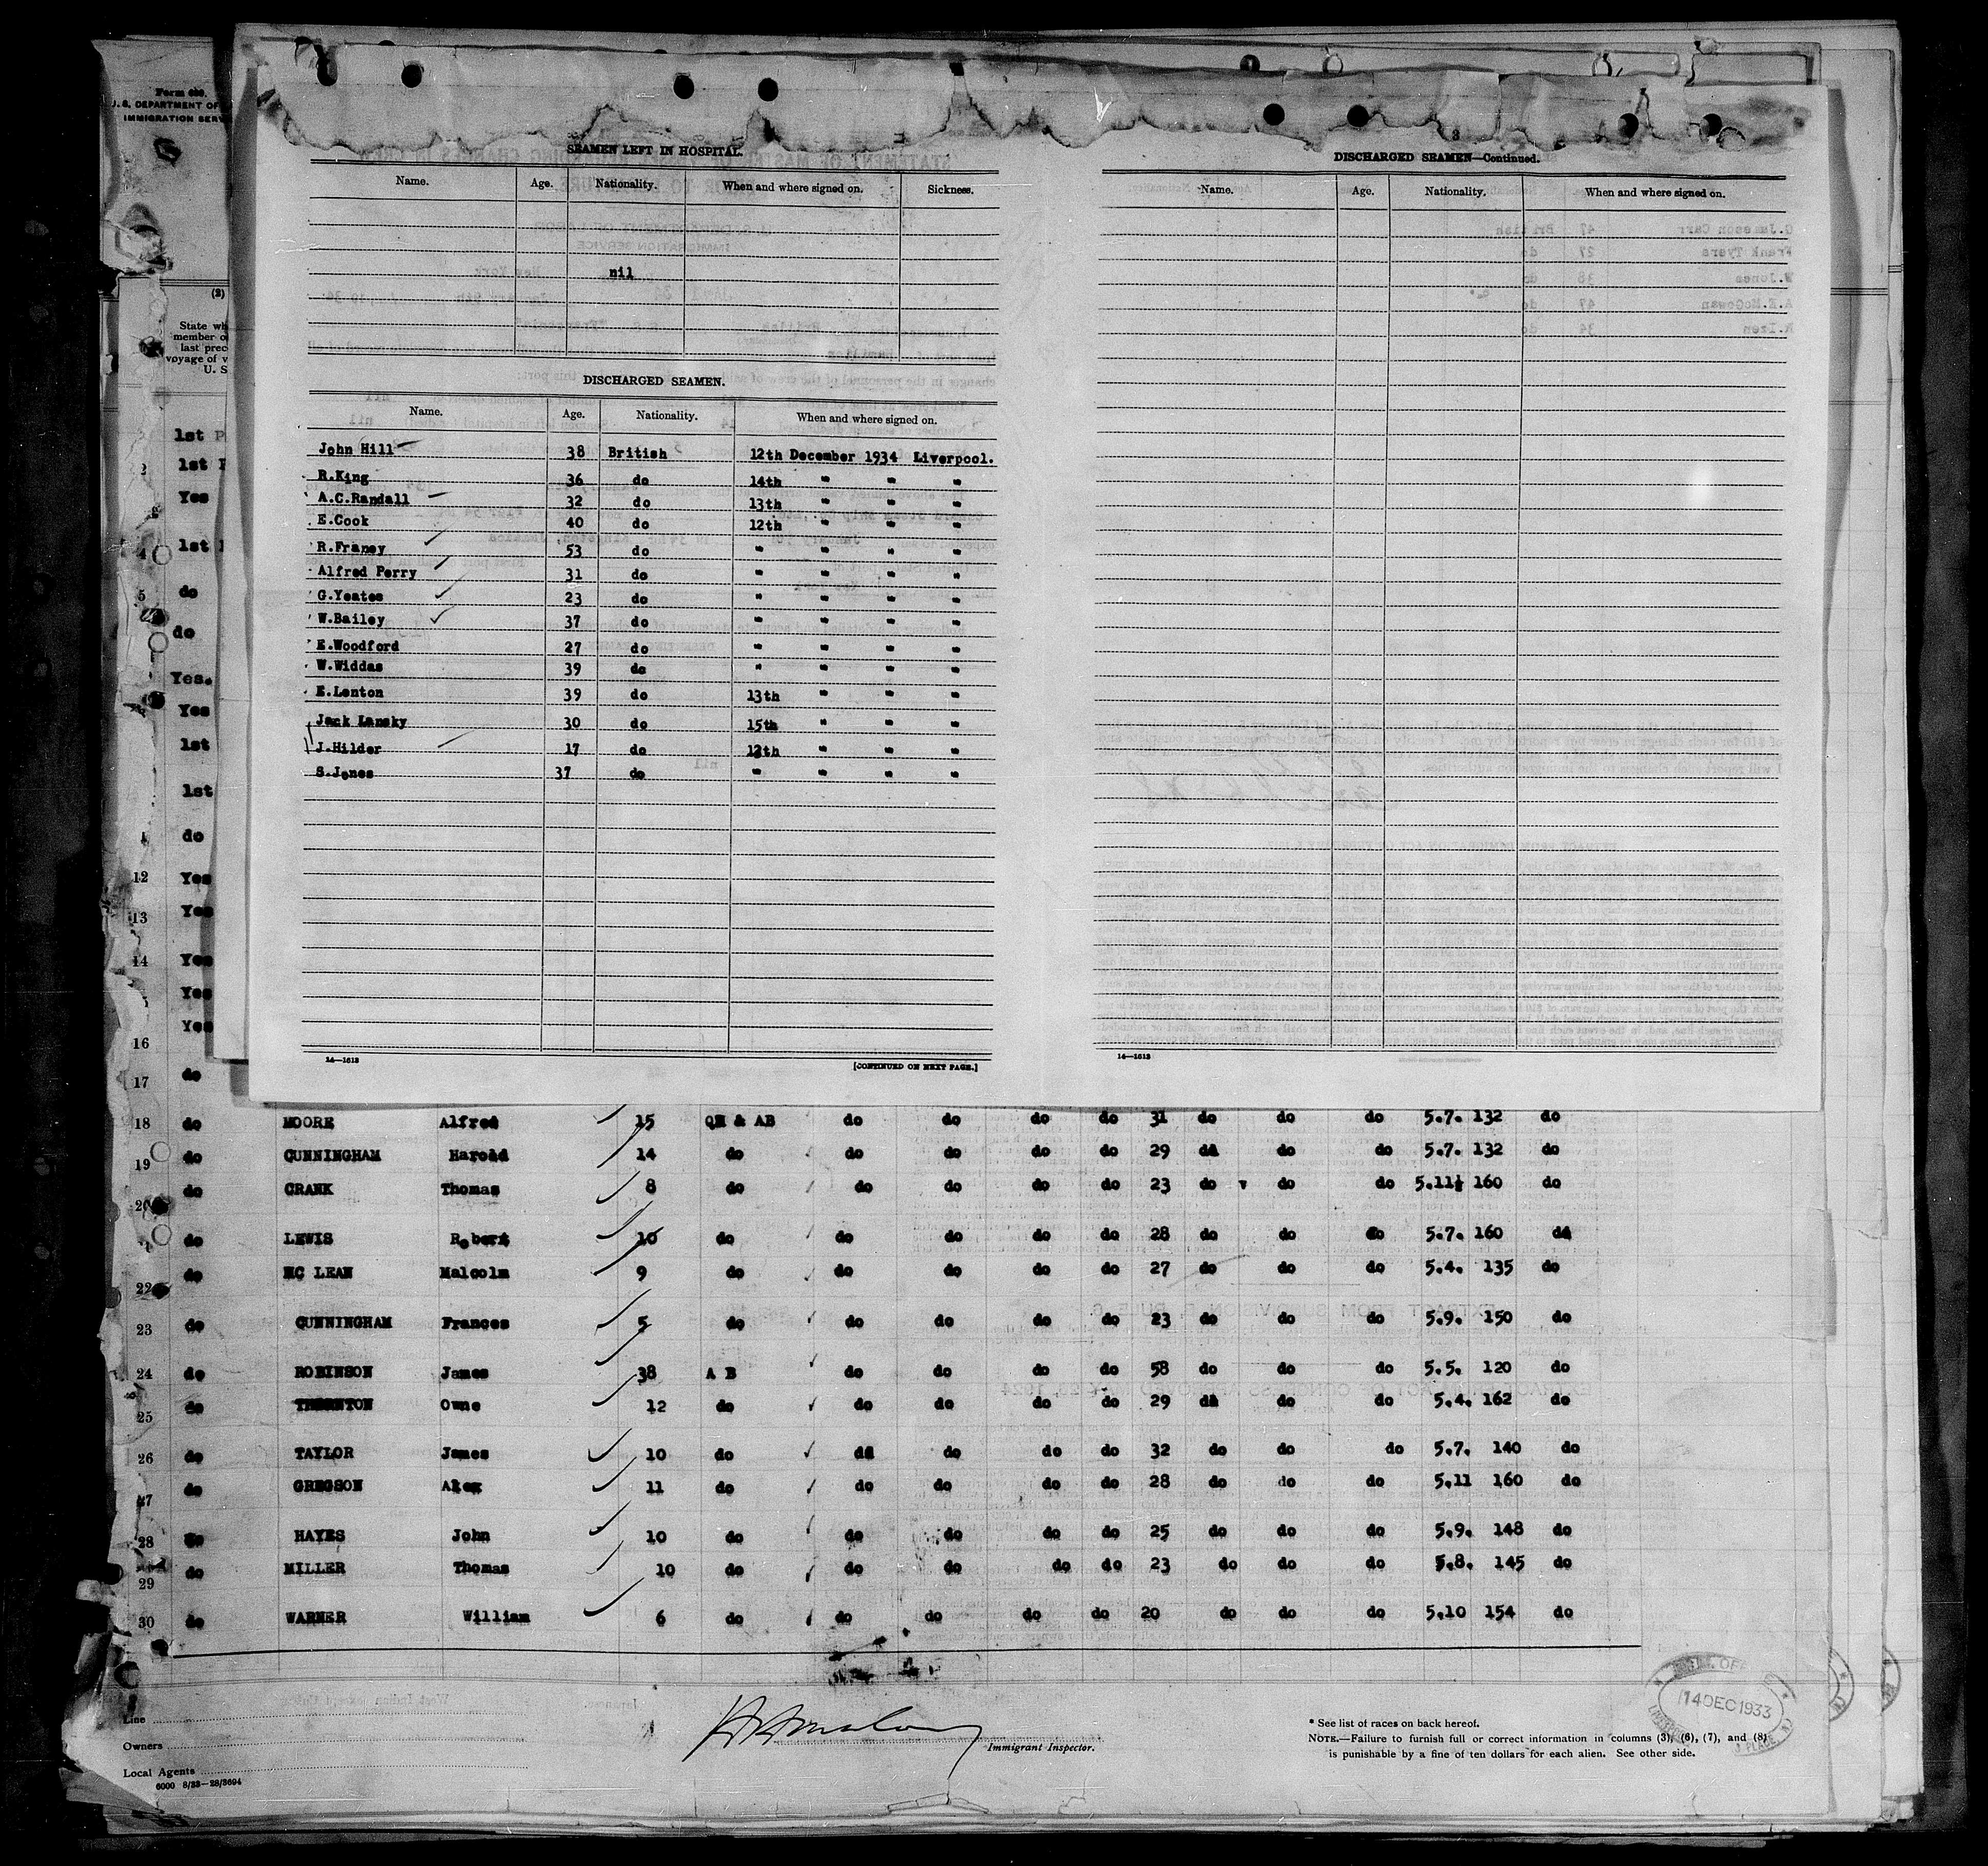 Form 689.
U. S. DEPARTMENT OF
IMMIGRATION SERV
(2)
State wh
member o
last prec
voyage of v
U. S
SEAMEN LEFT IN HOSPITAL.
Name. Age. Nationality. When and where signed on. Sickness.
nil
DISCHARGED SEAMEN.
Name. Age. Nationality. When and where signed on.
John Hill 38 British 12th December 1934 Liverpool.
R.King 36 do 14th " " "
A.C.Randall 32 do 13th " " "
E.Cook 40 do 12th " " "
R.Franey 53 do " " " "
Alfred Perry 31 do " " " "
G.Yeates 23 do " " " "
W.Bailey 37 do " " " "
E.Woodford 27 do " " " "
W.Widdas 39 do " " " "
E.Lenton 39 do 13th " " "
Jack Lansky 30 do 15th " " "
J.Hilder 17 do 12th " " "
S.Jones 37 do " " " "
14—1613
[CONTINUED ON NEXT PAGE.]
3
DISCHARGED SEAMEN—Continued.
Name. Age. Nationality. When and where signed on.
14—1613
1st P
1st
Yes
4 1st
5 do
do
Yes.
Yes
1st
1st
do
12 Yes
13 Yes
14 Yes
Yes
16 Yes
17 do
18 do MOORE Alfred 15 QM & AB do do do do 31 do do do 5.7. 132 do
19 do CUNNINGHAM Harold 14 do do do do do 29 do do do 5.7. 132 do
20 do CRANK Thomas 8 do do do do do 23 do do do 5.11½ 160 do
do LEWIS Robert 10 do do do do do 28 do do do 5.7. 160 do
22 do MC LEAN Malcolm 9 do do do do do 27 do do do 5.4. 135 do
23 do CUNNINGHAM Frances 5 do do do do do 23 do do do 5.9. 150 do
24 do ROBINSON James 38 A B do do do do 58 do do do 5.5. 120 do
25 do THORNTON Owne 12 do do do do do 29 do do do 5.4. 162 do
26 do TAYLOR James 10 do do do do do 32 do do do 5.7. 140 do
27 do GREGSON Alex 11 do do do do do 28 do do do 5.11 160 do
28 do HAYES John 10 do do do do do 25 do do do 5.9. 148 do
29 do MILLER Thomas 10 do do do do do 23 do do do 5.8. 145 do
30 do WARNER William 6 do do do do do 20 do do do 5.10 154 do
Line
Owners
Local Agents
6000 8/33—28/3694
Immigrant Inspector.
* See list of races on back hereof.
NOTE.—Failure to furnish full or correct information in columns (3), (6), (7), and (8)
is punishable by a fine of ten dollars for each alien. See other side.
14 DEC 1933